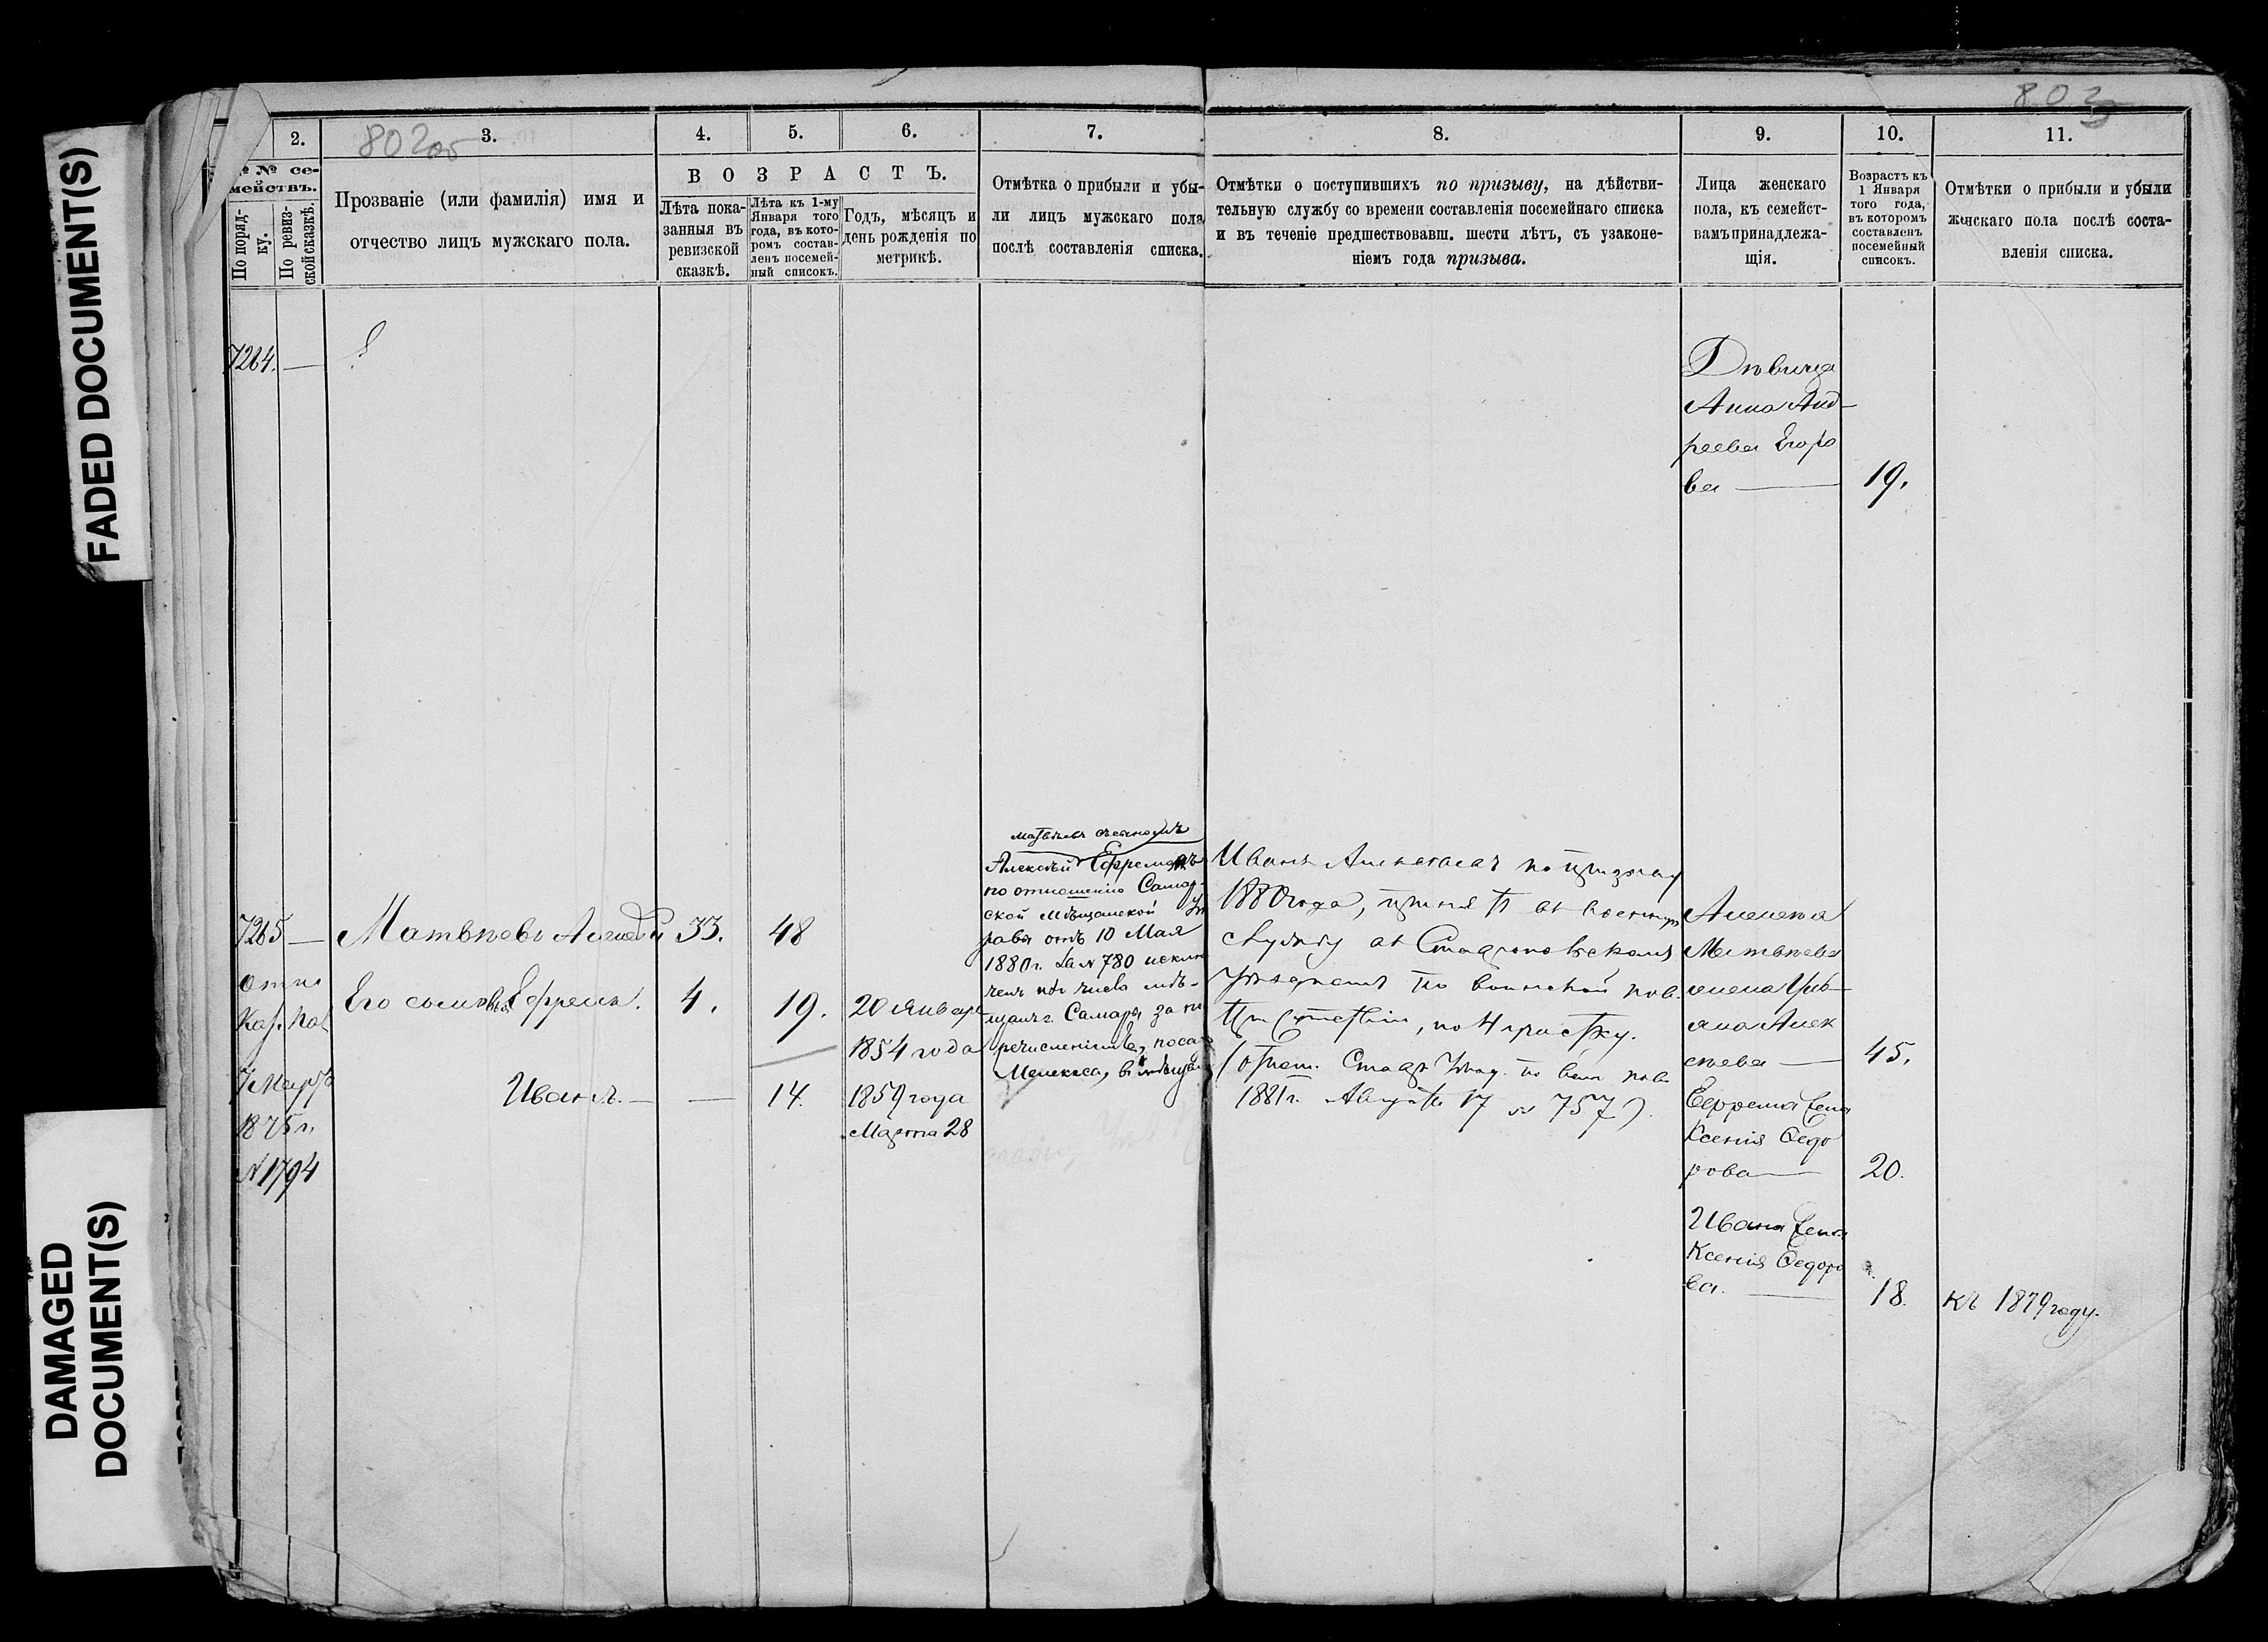 FADED DOCUMENT(S)
DAMAGED
DOCUMENT(S)
802 об
803
2.
3.
4.
5.
6.
7.
8.
9.
10.
11.
№ № се-
мействъ.
По поряд-
ку.
По ревиз-
ской сказкѣ.
Прозваніе (или фамилія) имя и
отчество лицъ мужскаго пола.
ВОЗРАСТЪ.
Лѣта пока-
занныя въ
ревизской
сказкѣ.
Лѣта къ 1-му
Января того
года, въ кото-
ромъ состав-
ленъ посемей-
ный списокъ.
Годъ, мѣсяцъ и
день рожденія по
метрикѣ.
Отмѣтка о прибыли и убы-
ли лицъ мужскаго пола
послѣ составленія списка.
Отмѣтки о поступившихъ по призыву, на дѣйстви-
тельную службу со времени составленія посемейнаго списка
и въ теченіе предшествовавш. шести лѣтъ, съ узаконе-
ніемъ года призыва.
Лица женскаго
пола, къ семейст-
вамъ принадлежа-
щія.
Возрастъ къ
1 Января
того года,
въ которомъ
составленъ
посемейный
списокъ.
Отмѣтки о прибыли и убыли
женскаго пола послѣ соста-
вленія списка.
7264. —
Дѣвица
Анна Анд-
реева Егоро
ва — 19.
7265 — Матвѣевъ Алексѣй 33. 48
Его сыновья Ефремъ. 4. 19. 20 Января
1854 года
Иванъ. — — 14. 1859 года
Марта 28
7 Марта
1875 г.
№ 1794
Матвѣевъ съ сыномъ
Алексѣй Ефремомъ
по отношенію Самар-
ской Мѣщанской Уп
равы отъ 10 Мая
1880 г. за № 780 исклю
ченъ изъ числа мѣ-
щанъ г. Самары за пе
речисленіемъ, поса
Мелекеса, въ мѣщане
Иванъ Алексѣевъ по призыву
1880 года, принятъ въ военную
службу въ Ставропольскомъ
Уѣздномъ по воинской пов.
Присутствіи, по 4 участку.
(отнош. Ставр Уѣзд. по воин пов
1881 г. Августа 17 № 757).
Алексѣя
Матвѣева
жена Уль-
яна Алек
сѣева — 45.
Ефрема жена
Ксенія Ѳедо
рова — 20.
Ивана жена
Ксенія Ѳедоро
ва. — 18. къ 1879 году.